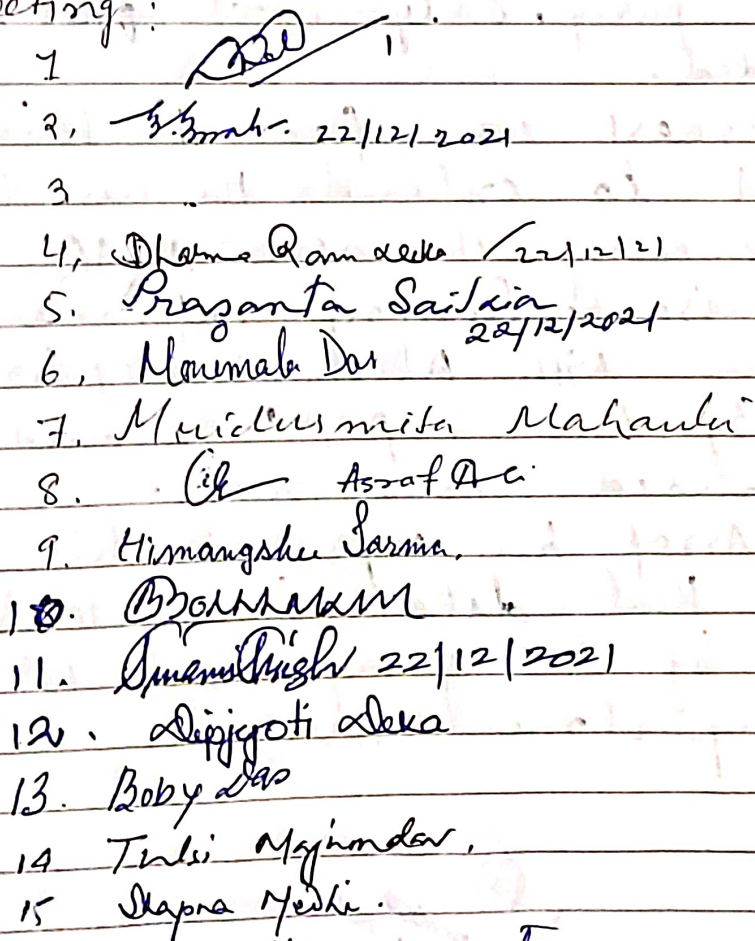 1
2. 22/12/2021
3
4, Dharma Ram Deka /22/12/21
5. Prasanta Saikia
22/12/2021
6, Monumala Das
7. Mridusmita Mahanta
8. Asraf Ali
9. Himangshu Sarma.
10.
11. 22/12/2021
12. Dipjyoti Deka
13. Boby Das
14 Tulsi Majumdar,
15 Swapna Medhi.